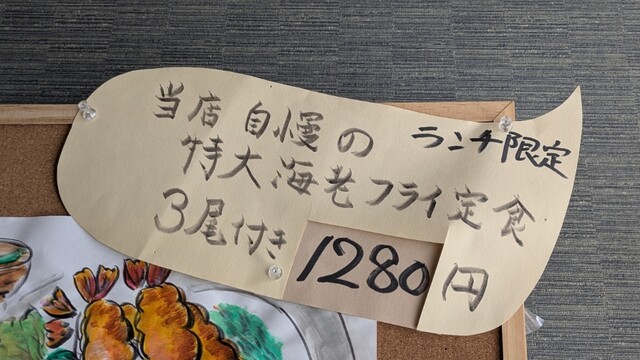 当店自慢の
ランチ限定
特大海老フライ定食
3尾付き
1280円